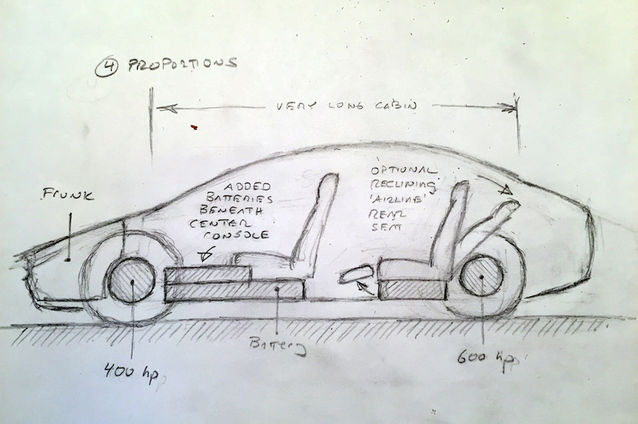 ④ PROPORTIONS
VERY LONG CABIN
FRUNK
ADDED
BATTERIES
BENEATH
CENTER
CONSOLE
OPTIONAL
RECLINING
'AIRLINE'
REAR
SEAT
400 hp
Battery
600 hp